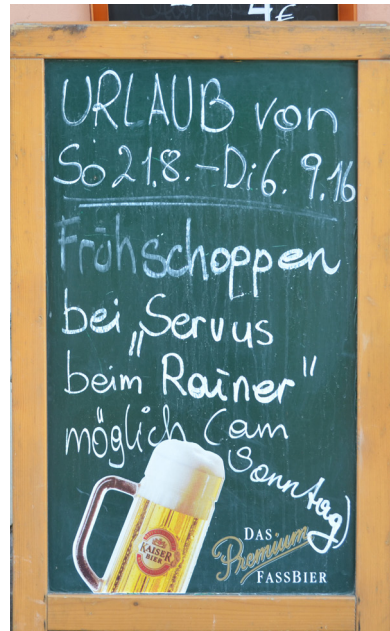 4€
URLAUB von
So 21.8. - Di 6. 9.16
Frühschoppen
bei „Servus
beim Rainer"
möglich (am
Sonntag)
KAISER
BIER
DAS
Premium
FASSBIER